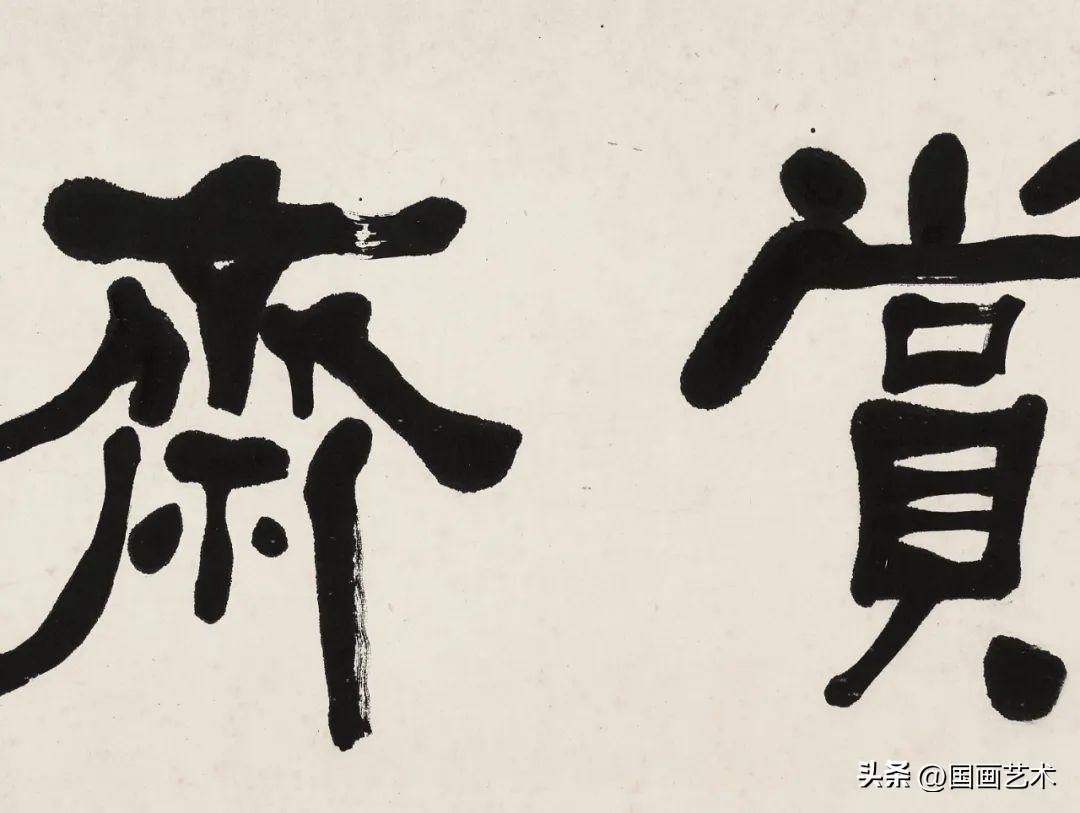 賞齋
头条 @国画艺术